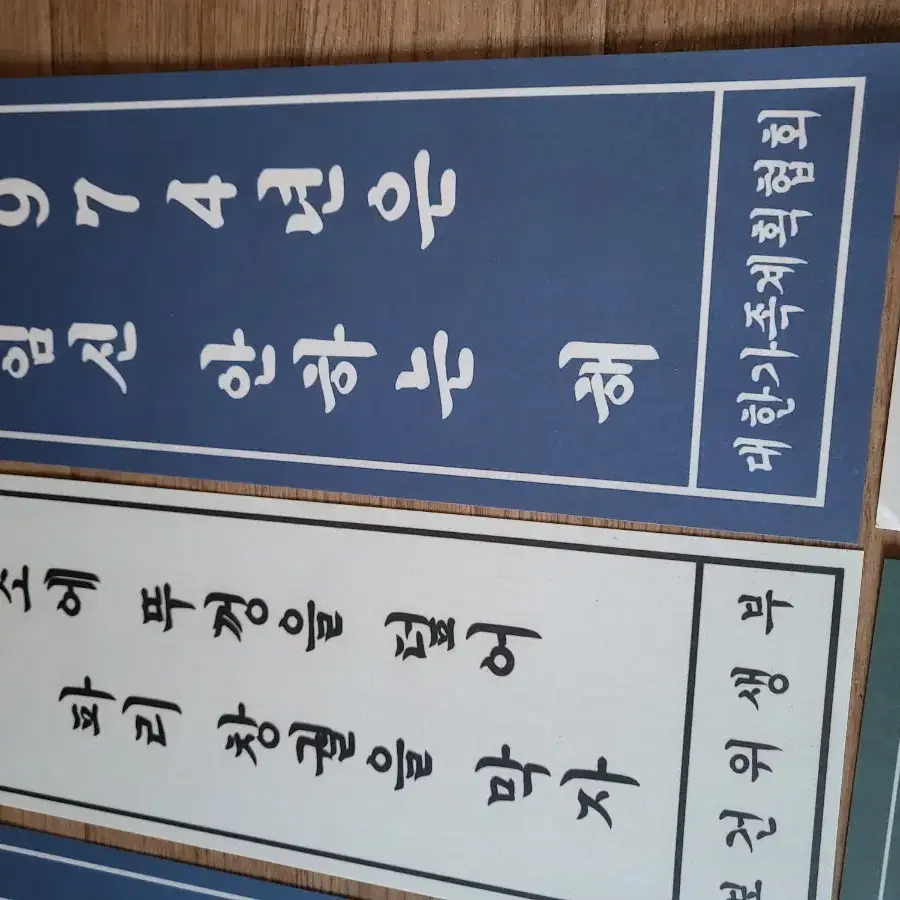 974년은
임신 안하는 해
대한가족계획협회
소에 뚜껑을 덮어
파리 창궐을 막자
보건위생부